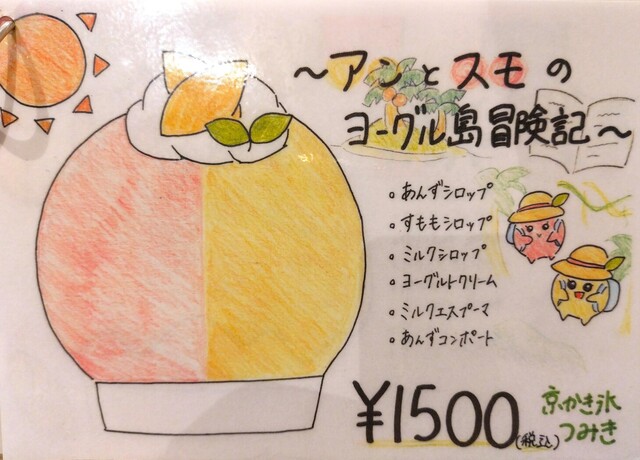 ～アンとスモの
ヨーグル島冒険記～
。あんずシロップ
。すももシロップ
。ミルクシロップ
。ヨーグルトクリーム
。ミルクエスプーマ
。あんずコンポート
¥1500(税込)
京かき氷
つみき